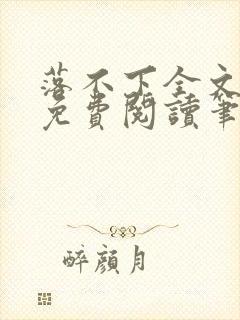 落不下全文
免費閱讀筆
醉顏月